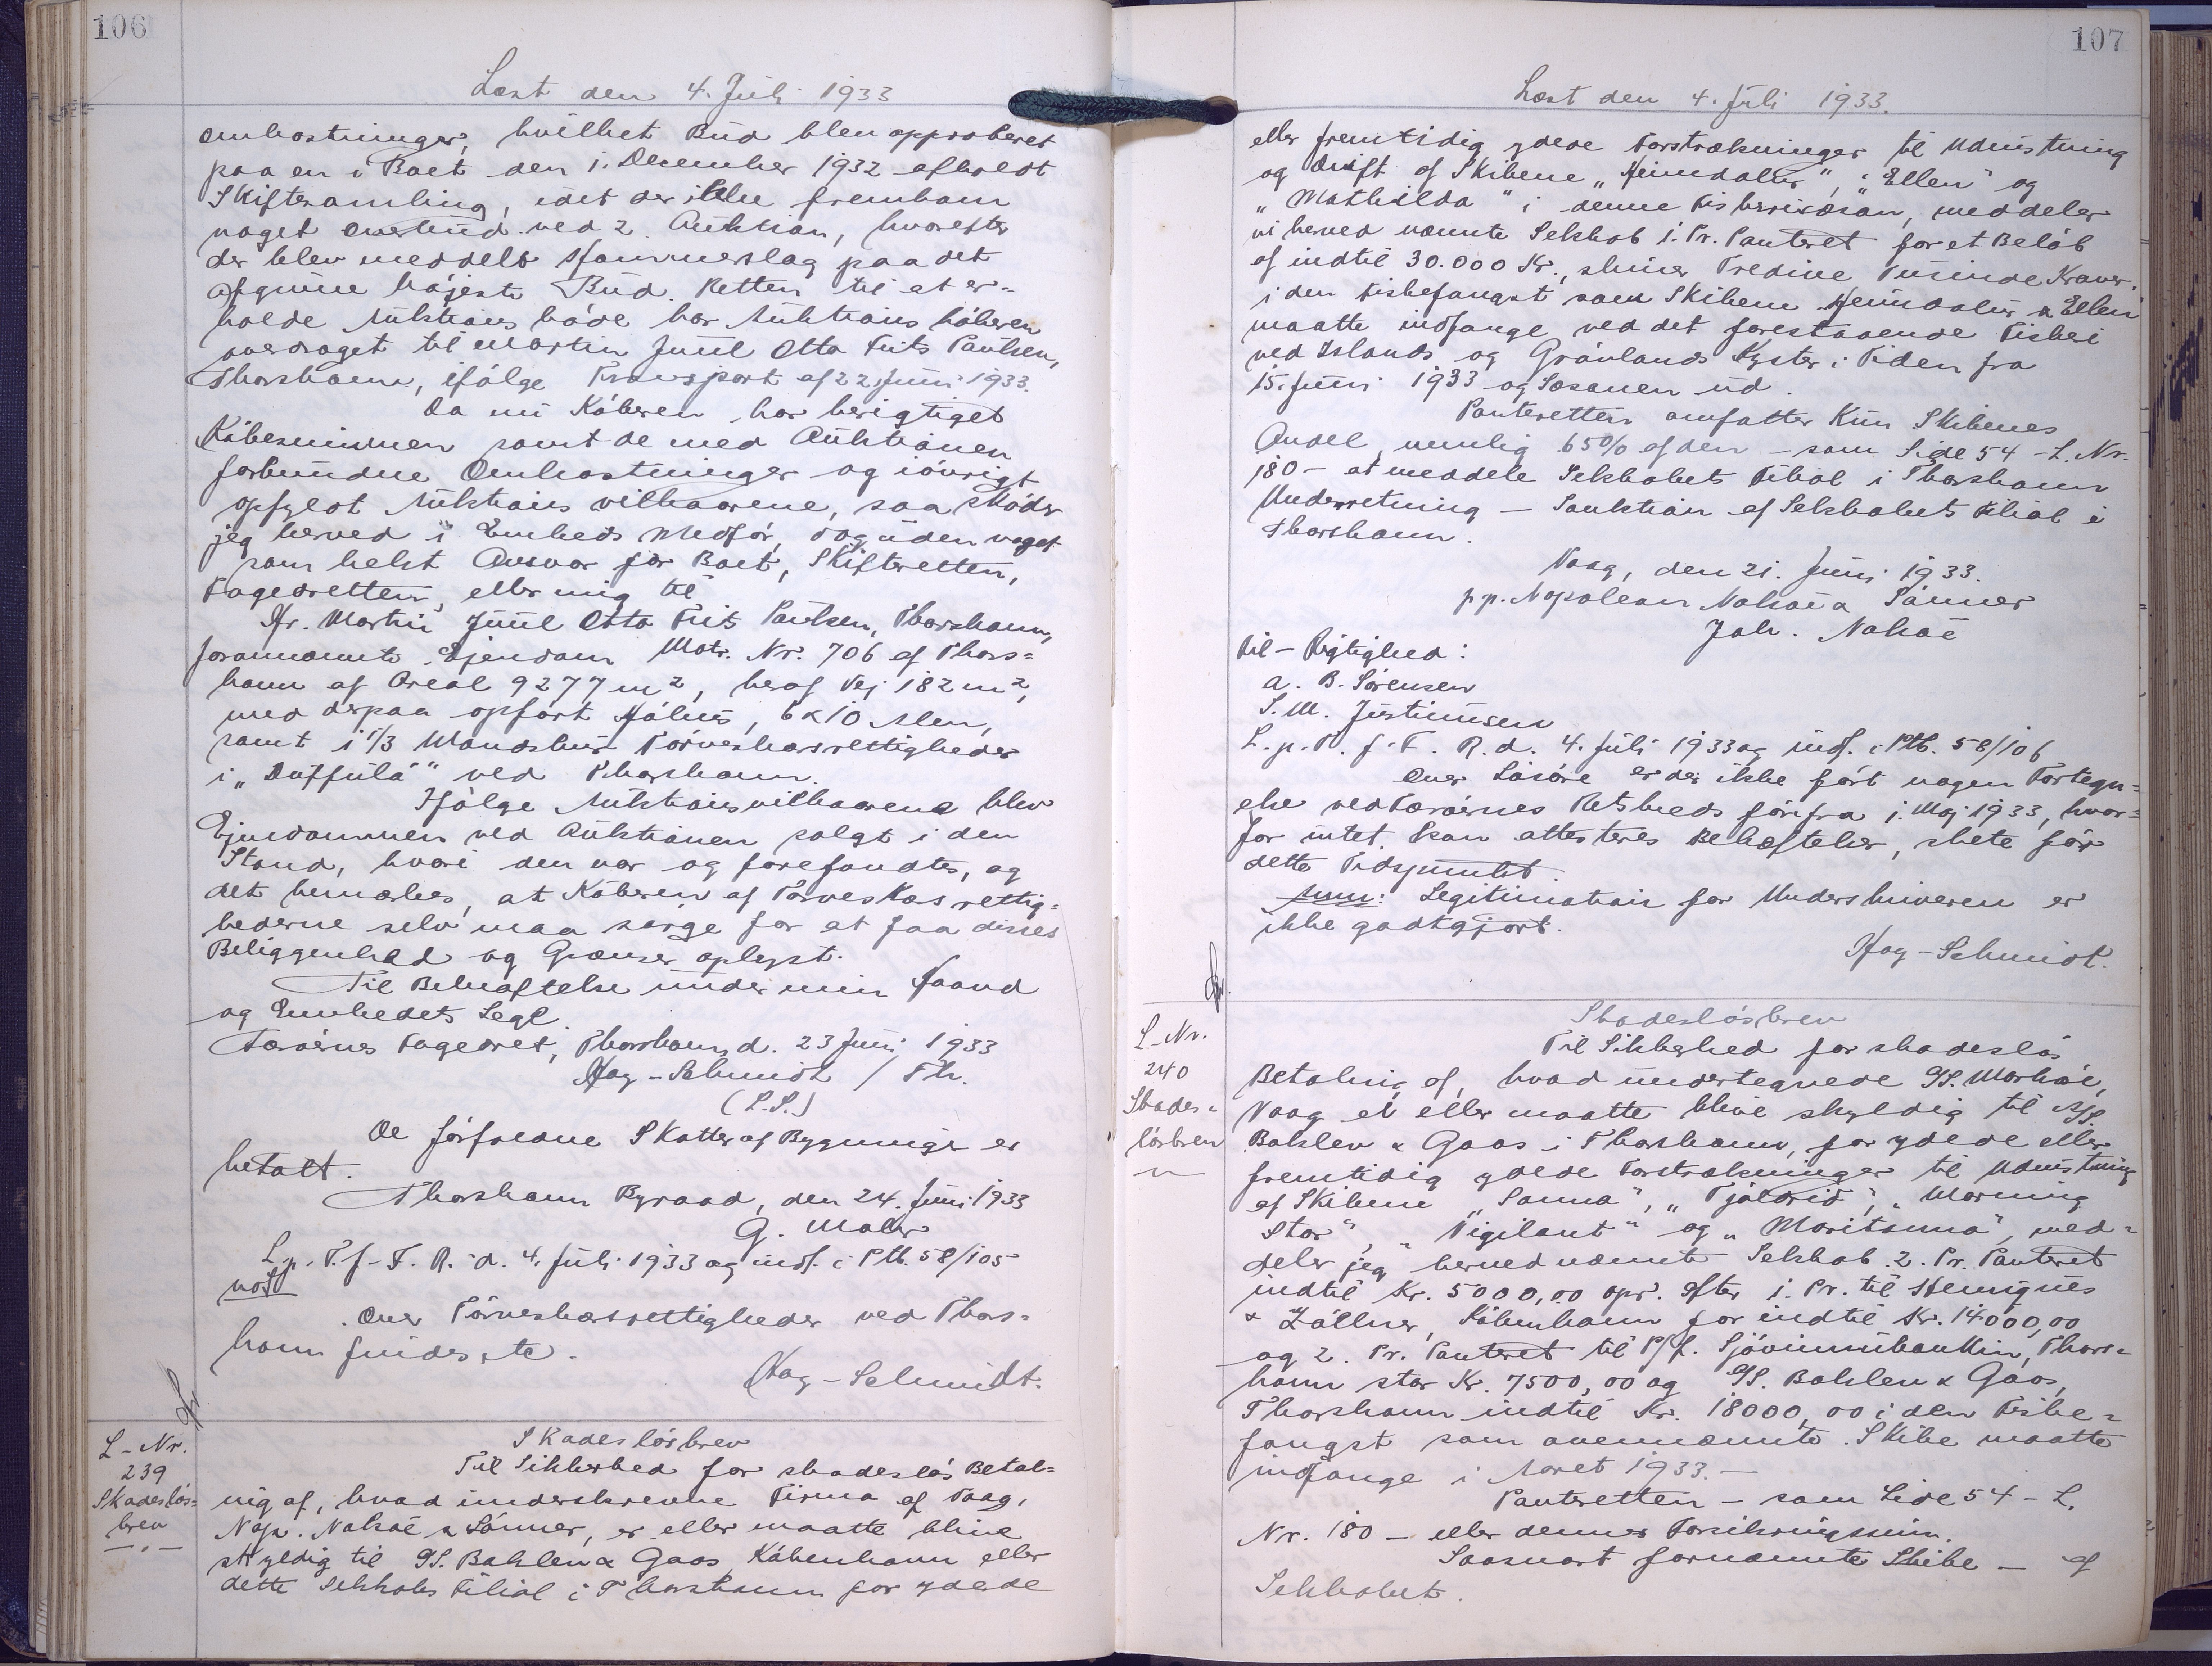 106
Læst den 4. Juli 1933
omkostninger, hvilket Bud blev approberet
paa en i Boet den 1. December 1932 afholdt
Skiftesamling, idet der ikke fremkom
noget Overbud ved 2. Auktion, hvorefter
der blev meddelt Hammerslag paa det
afgivne højeste Bud. Retten til at er-
holde Auktions Skøde har Auktions køberen
overdraget til Martin Juul Otto Frits Paulsen,
Thorshavn, ifølge Transport af 22. Juni 1933.
Da nu Køberen har berigtiget
Købesummen samt de med Auktionen
forbundne Omkostninger og iøvrigt
opfyldt Auktions vilkaarene, saa skøder
jeg herved i Embeds Medfør, dog uden noget
som helst Ansvar for Boet, Skifteretten,
Fogedretten, eller mig til
Hr. Martin Juul Otto Frits Paulsen, Thorshavn,
forannævnte Ejendom Matr. Nr. 706 af Thors-
havn af Areal 9277 m², heraf Vej 182 m²,
med derpaa opført Høhus, 6 x 10 Alen,
samt i 1/3 Mandskurs Tørveskærsrettigheder
i " " ved Thorshavn.
Ifølge Auktionsvilkaarene blev
Ejendommen ved Auktionen solgt i den
Stand, hvori den var og forefandtes, og
det bemærkes, at Køberen af Tørveskærsrettig-
hederne selv maa sørge for at faa disses
Beliggenhed og Grænser oplyst.
Til Bekræftelse under min Haand
og Embedets Segl.
Færøernes Fogedret, Thorshavn, d. 23 Juni 1933
Hag-Schmidt / Fh.
(L.S.)
De forfaldne Skatter af Bygninge er
betalt.
Thorshavn Byraad, den 24. Juni 1933
G. Mohr
L.p. T. f. F. R. d. 4. Juli 1933 og indf. i Ptb. 58/105
not
Over Tørveskærsrettigheder ved Thors-
havn findes
Hag-Schmidt.
L-Nr.
239
Skadesløs-
brev
Skadesløsbrev
Til Sikkerhed for skadesløs Betal-
ning af, hvad underskrevne Firma af Vaag,
Nap. Nolsøe & Sønner, er eller maatte blive
skyldig til A/S. Bahlen & Gaas, København eller
dette Selskabs Filial i Thorshavn for ydede
107
Læst den 4. Juli 1933.
eller fremtidig ydede Forstrækninger til Udrustning
og Drift af Skibene "Heimdalur", "Ellen" og
"Mathilda" i denne Fiskerisæson, meddeler
vi herved nævnte Selskab 1. Pr. Panteret for et Beløb
af indtil 30.000 Kr., skriver Tredive Tusinde Kroner,
i den Fiskefangst som Skibene Heimdalur & Ellen
maatte indfange ved det forestaaende Fiskeri
ved Islands og Grønlands Kyster i Tiden fra
15. Juni 1933 og Sæsonen ud.
Panteretten omfatter kun Skibenes
Andel, nemlig 65% af den - som Side 54 - L. Nr.
180 - at meddele Selskabets Filial i Thorshavn
Underretning - Sanktion af Selskabets Filial i
Thorshavn.
Vaag, den 21. Juni 1933.
p.p. Napoleon Nolsøe & Sønner
Joh. Nolsøe
Til - Rigtighed:
A. B. Sørensen
S. M. Justinussen
L. p. T. f. F. R. d. 4. Juli 1933 og indf. i Ptb. 58/106
Over Løsøre er der ikke ført nogen Fortegn-
else ved Færøernes Retskreds før fra 1. Maj 1933, hvor-
for intet kan attesteres Behæftelser, skete før
dette Tidspunkt.
Anm: Legitimation for Underskriveren er
ikke godtgjort.
Hag-Schmidt.
L-Nr.
240
Skades-
løsbrev
Skadesløsbrev
Til Sikkerhed for skadesløs
Betaling af, hvad undertegnede
Vaag er eller maatte blive skyldig til A/S.
Bahlen & Gaas i Thorshavn, for ydede eller
fremtidig ydede Forstrækninger til Udrustning
af Skibene "Sanna", "Tjaldrid", "Morning
Star", "Vigilant" og "Maritanna", med-
deler jeg herved nævnte Selskab 2. Pr. Panteret
indtil Kr. 5000,00 opr. efter 1. Pr. til Henriques
& Zöllner, København for indtil Kr. 14000,00
og 2. Pr. Panteret til P/f. Sjóvinnubankin, Thors-
havn stor Kr. 7500,00 og A/S. Bahlen & Gaas,
Thorshavn indtil Kr. 18000,00 i den Fiske-
fangst som ovennævnte Skibe maatte
indfange i Aaret 1933.-
Panteretten - som Side 54 - L.
Nr. 180 - eller dennes Forsikringssum.
Saasnart fornævnte Skibe - af
Selskabet.